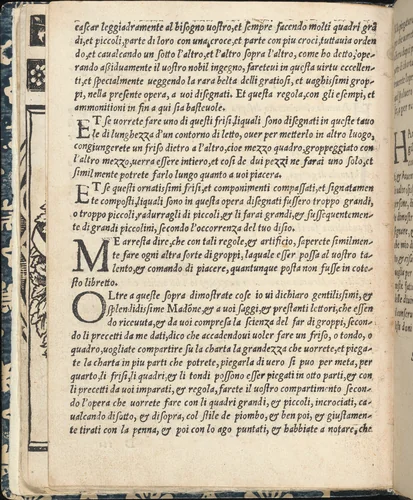 cascar leggiadramente al bisogno uostro, et sempre facendo molti quadri grā
di, et piccoli, parte di loro con una, croce, et parte con piu croci, tuttauia orden
do, et caualcando un sotto l'altro, et l'altro sopra l'altro, come ho detto, ope‑
rando assiduamente il uostro nobil ingegno, fareteui in questa uirtu eccellen‑
ti, et specialmente ueggendo la rara belta delli gratiosi, et uaghissimi grop‑
pi, nella presente opera, a uoi disegnati. Et questa regola, con gli esempi, et
ammonitioni in fin a qui sia basteuole.
ET se uorrete fare uno di questi frisi, liquali sono disegnati in queste tauo
le di lunghezza d'un contorno di letto, ouer per metterlo in altro luogo,
congiungerete un friso dietro a l'altro, cioe mezzo quadro, groppeggiato con
l'altro mezzo, uerra essere intiero, et cosi de dui pezzi ne farai uno solo, et
similmente potrete farlo lungo quanto a uoi piacera.
ET se questi ornatissimi frisi, et componimenti compassati, et signatamen
te composti, liquali sono in questa opera disegnati fussero troppo grandi,
o troppo piccoli, radurragli di piccoli, & li farai grandi, & sussequentemen‑
te di grandi piccolini, secondo l'occorrenza del tuo disio.
ME arresta dire, che con tali regole, & artificio, saperete similmen‑
te fare ogni altra sorte di groppi, laquale esser possa al uostro ta‑
lento, & comando di piacere, quantunque posta non fusse in cote‑
sto libretto.
OLtre a queste sopra dimostrate cose io ui dichiaro gentilissimi, &
splendidissime Madōne, & a uoi saggi, & prestanti lettori, che essen
do riceuuta, & da uoi compresa la scienza del far di groppi, secon‑
do li precetti da me dati, dico che accadendoui uoler fare un friso, o tondo, o
quadro, uogliate compartire su la charta la grandezza che uorrete, et piega‑
te la charta in piu parti che potrete, piegarla di uero si puo per meta, per
quarto, li frisi, li quadri, & li tondi possono esser piegati in otto parti, & con
li precetti da uoi imparati, & regola, farete il uostro compartimento secon‑
do l'opera che uorrete fare con li quadri grandi, & piccoli, incrociati, ca‑
ualcando disotto, & disopra, col stile de piombo, & ben poi, & giustamen‑
te tirati con la penna, & poi con lo ago puntati, & habbiate a notare, che